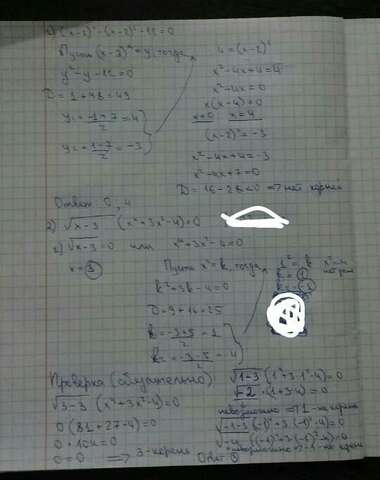 1) (x-2)⁴-(x-2)²-12=0
Пусть (x-2)²=y, тогда
y²-y-12=0
D=1+48=49
y₁=-1+7/2=4
y=+1-7/2=-3
4=(x-2)²
x²-4x+4=4
x²-4x=0
x(x-4)=0
x=0 x=4
(x-2)²=-3
x²-4x+4=-3
x²-4x+7=0
D=16-28<0 ⇒ нет корней
Ответ 0, 4
2) √x-3 (x⁴+3x²-4)=0
√x-3=0 или x⁴+3x²-4=0
x=3
Пусть x²=k, тогда
k²+3k-4=0
D=9+16=25
k=-3+5/2=1
k=-3-5/2=-4
Проверка (обязательно)
√3-3 (x⁴+3x²-4)=0
0(81+27-4)=0
0·104=0
0=0 ⇒ 3-корень
√1-3(1⁴+3·1²-4)=0
√-2·(1+3-4)=0
невозможно ⇒ 1-не корень
√-1-3((-1)⁴+3(-1)²-4)=0
√-4((-1)⁴+3(-1)²-4)=0
невозможно ⇒ -1-не корень
Ответ 3